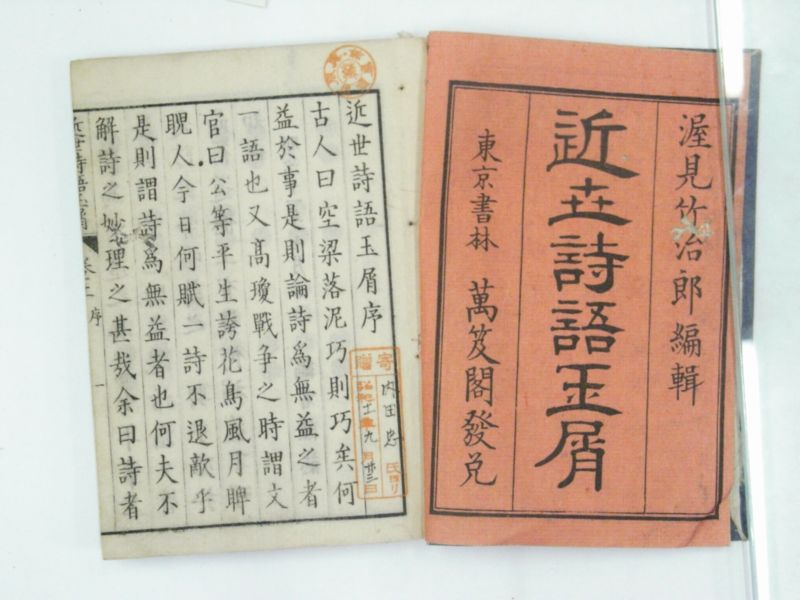 渥見竹治郎編輯
近世詩語玉屑
東京書林 萬笈閣發兌
近世詩語玉屑序
古人曰空梁落泥巧則巧矣何
益於事是則論詩爲無益之者
一語也又高瓊戰爭之時謂文
官曰公等平生誇花鳥風月睥
睨人今日何賦一詩不退敵乎
是則謂詩爲無益者也何夫不
解詩之妙理之甚哉余曰詩者
近世詩語玉屑 序 一
寄贈
昭和十一年九月廿三日